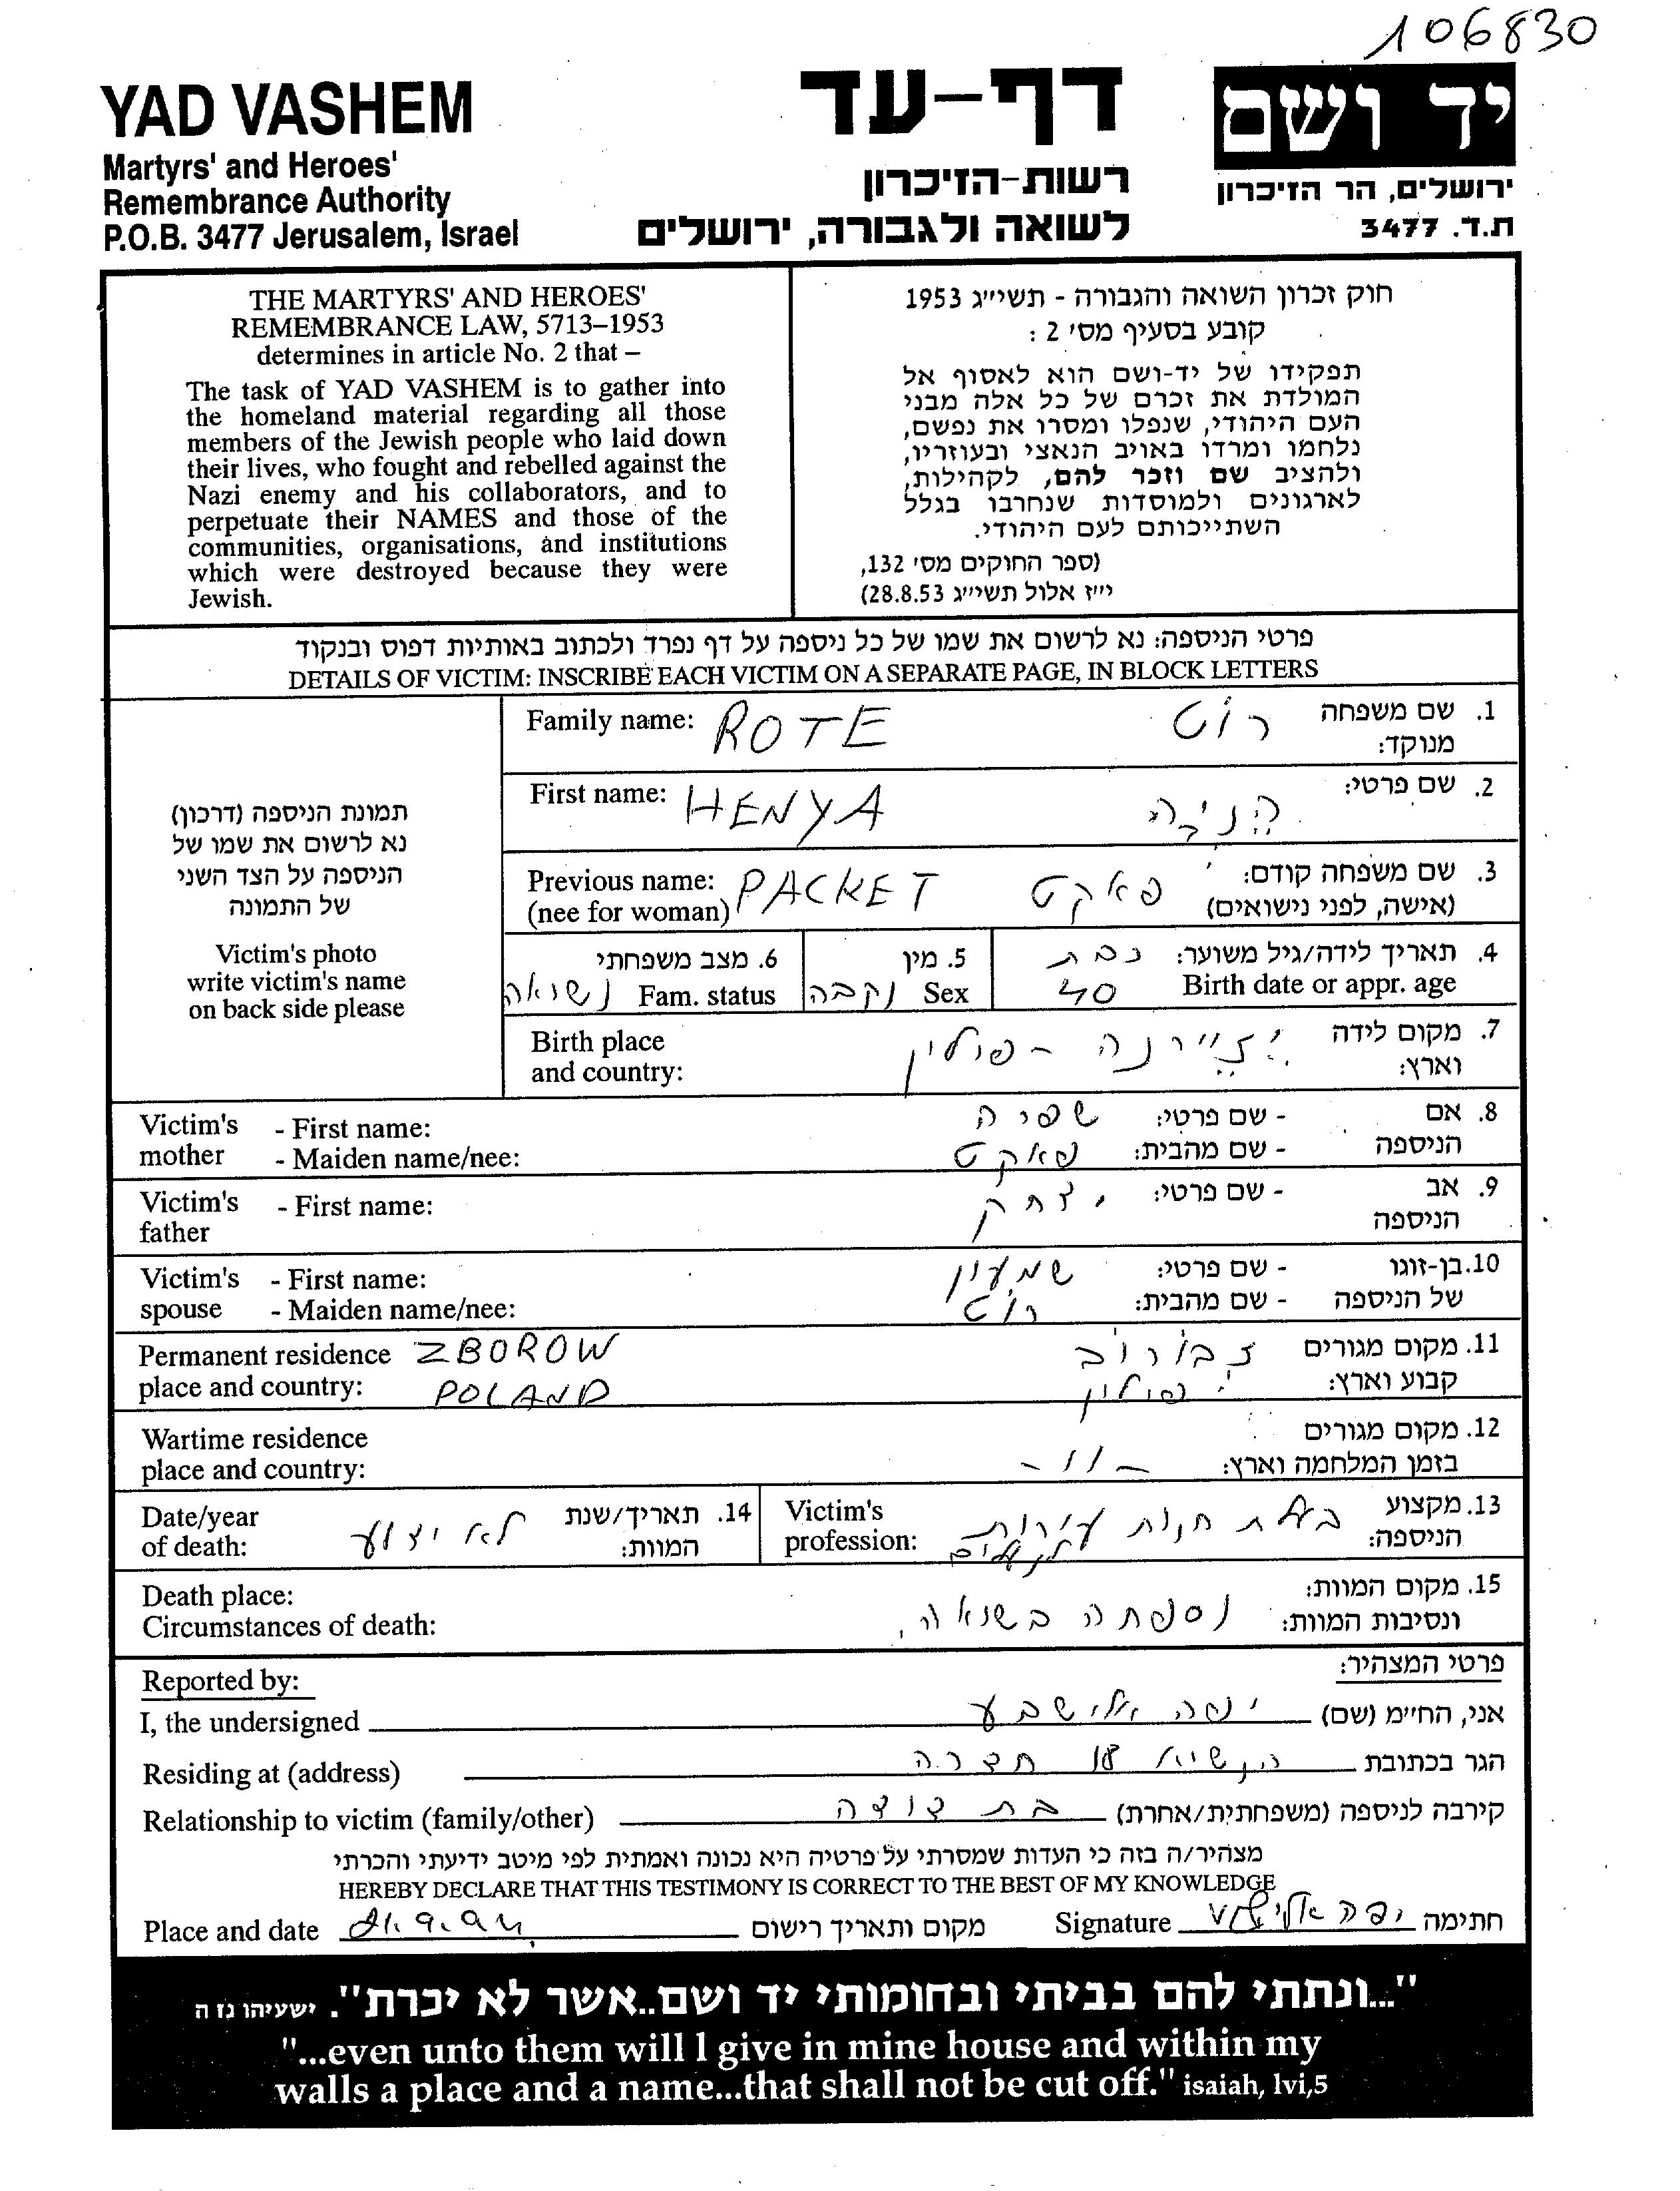 106830
YAD VASHEM
Martyrs' and Heroes'
Remembrance Authority
P.O.B. 3477 Jerusalem, Israel
דף-עד
רשות-הזיכרון
לשואה ולגבורה, ירושלים
יד ושם
ירושלים, הר הזיכרון
ת.ד. 3477
THE MARTYRS' AND HEROES'
REMEMBRANCE LAW, 5713–1953
determines in article No. 2 that –
The task of YAD VASHEM is to gather into
the homeland material regarding all those
members of the Jewish people who laid down
their lives, who fought and rebelled against the
Nazi enemy and his collaborators, and to
perpetuate their NAMES and those of the
communities, organisations, and institutions
which were destroyed because they were
Jewish.
חוק זכרון השואה והגבורה - תשי״ג 1953
קובע בסעיף מס׳ 2 :
תפקידו של יד-ושם הוא לאסוף אל
המולדת את זכרם של כל אלה מבני
העם היהודי, שנפלו ומסרו את נפשם,
נלחמו ומרדו באויב הנאצי ובעוזריו,
ולהציב שם וזכר להם, לקהילות,
לארגונים ולמוסדות שנחרבו בגלל
השתייכותם לעם היהודי.
(ספר החוקים מס׳ 132,
י״ז אלול תשי״ג 28.8.53)
פרטי הניספה: נא לרשום את שמו של כל ניספה על דף נפרד ולכתוב באותיות דפוס ובנקוד
DETAILS OF VICTIM: INSCRIBE EACH VICTIM ON A SEPARATE PAGE, IN BLOCK LETTERS
תמונת הניספה (דרכון)
נא לרשום את שמו של
הניספה על הצד השני
של התמונה
Victim's photo
write victim's name
on back side please
Family name: ROTE רוֹט 1. שם משפחה
מנוקד:
First name: HENYA הֶנְיָה 2. שם פרטי:
Previous name: PACKET פאקט 3. שם משפחה קודם:
(nee for woman) (אישה, לפני נישואים)
4. תאריך לידה/גיל משוער: כבת
Birth date or appr. age 40
5. מין
Sex נקבה
6. מצב משפחתי
Fam. status נשואה
Birth place 7. מקום לידה
and country: פולין וארץ:
Victim's - First name: שפיה - שם פרטי: 8. אם
mother - Maiden name/nee: פאקט - שם מהבית: הניספה
Victim's - First name: יצחק - שם פרטי: 9. אב
father הניספה
Victim's - First name: שמעון - שם פרטי: 10. בן-זוגו
spouse - Maiden name/nee: רוט - שם מהבית: של הניספה
Permanent residence ZBOROW זבורוב 11. מקום מגורים
place and country: POLAND פולין קבוע וארץ:
Wartime residence 12. מקום מגורים
place and country: -״- בזמן המלחמה וארץ:
Date/year
of death: לא ידוע
14. תאריך/שנת
המוות:
Victim's
profession: בעלת חנות עורות
לנעלים
13. מקצוע
הניספה:
Death place: 15. מקום המוות:
Circumstances of death: נספתה בשואה, ונסיבות המוות:
Reported by: פרטי המצהיר:
I, the undersigned יפה אלישבע אני, החי״מ (שם)
Residing at (address) הנשיא 18 חדרה הגר בכתובת
Relationship to victim (family/other) בת דודה קירבה לניספה (משפחתית/אחרת)
מצהיר/ה בזה כי העדות שמסרתי על פרטיה היא נכונה ואמתית לפי מיטב ידיעתי והכרתי
HEREBY DECLARE THAT THIS TESTIMONY IS CORRECT TO THE BEST OF MY KNOWLEDGE
Place and date 21.9.94 מקום ותאריך רישום Signature יפה אלישבע חתימה
"...ונתתי להם בביתי ובחומותי יד ושם..אשר לא יכרת". ישעיהו נו ה
"...even unto them will I give in mine house and within my
walls a place and a name...that shall not be cut off." isaiah, lvi,5